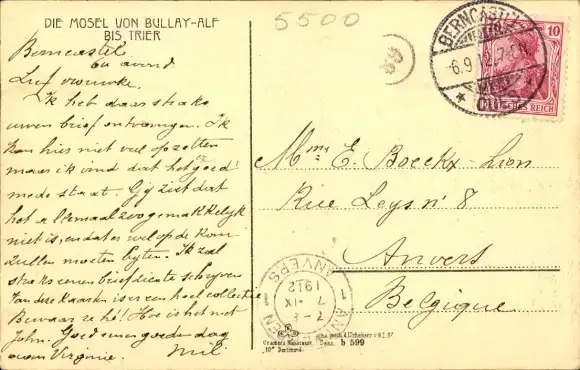 DIE MOSEL VON BULLAY-ALF
BIS TRIER
5500
Berncastel
6u avond
Lief vrouwke.
Ik heb daar straks
uwen brief ontvangen. Ik
kan hier niet veel op zetten
maar ik vind dat het er goed
mede staat. Gij ziet dat
het allemaal zoo gemakkelijk
niet is, en dat er wel op de kan
zullen moeten
Ik zal
straks eenen brief schrijven
Van deze Kaarten is er een heel collectie
Bewaar ze hé! Hoe is het met
John. Goed eenen goeden dag
aan Virginie.
Mme E. Boeckx-Lion
Rue Leys no 8
Anvers
Belgique
BERNCASTEL
6.9.12.7-8
10
DEUTSCHES REICH
ANVERS
1912
7 IX
7-8
ANTWERPEN
Dess. b 599
"10" Dortmund.